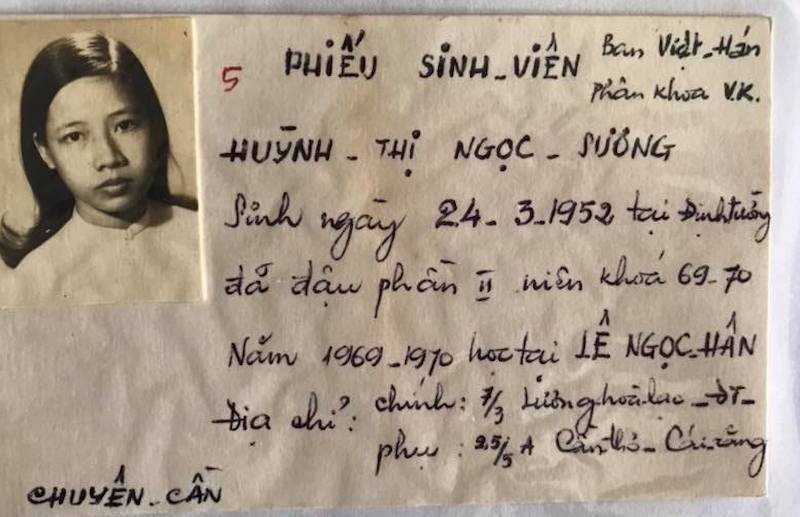 5 PHIẾU SINH-VIÊN
Ban Việt-Hán
Phân khoa V.K.
HUỲNH - THỊ NGỌC - SƯƠNG
Sinh ngày 24-3-1952 tại Định tường
đã đậu phần II niên khoá 69-70
Năm 1969-1970 học tại LÊ NGỌC-HÂN
Địa chỉ: chính: 7/3 Lương hoà lạc - ĐT-
phụ: A Cần thơ - Cái răng
CHUYÊN-CẦN